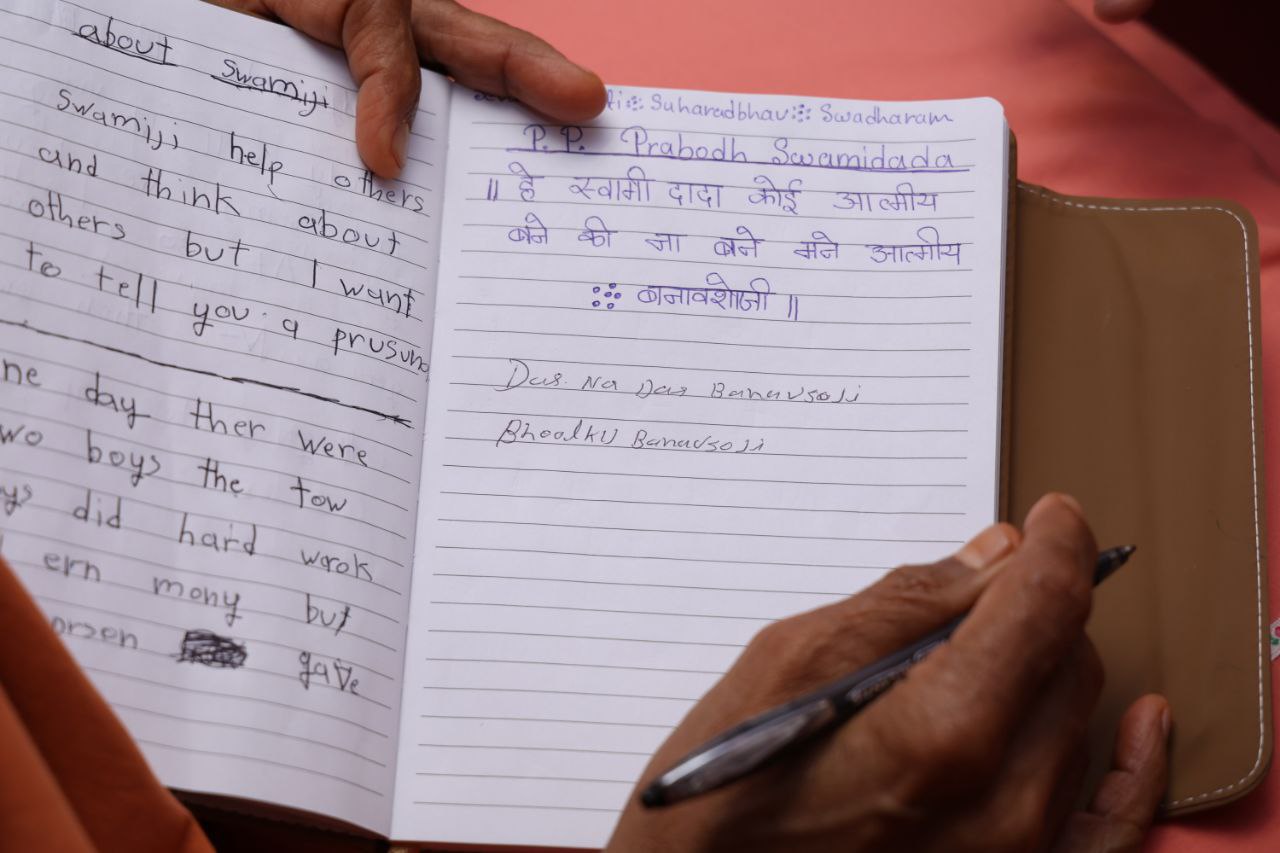 about Swamiji
Swamiji help others
and think about
others but I want
to tell you a
day ther were
boys the tow
did hard wrok
ern mony but
gave
Suharadbhav Swadharam
P.P. Prabodh Swamidada
॥ हे स्वामी दादा कोई आत्मीय
बने की ना बने मने आत्मीय
बनावशोजी ॥
Das Na Das Banavsoji
Bhoolku Banavsoji